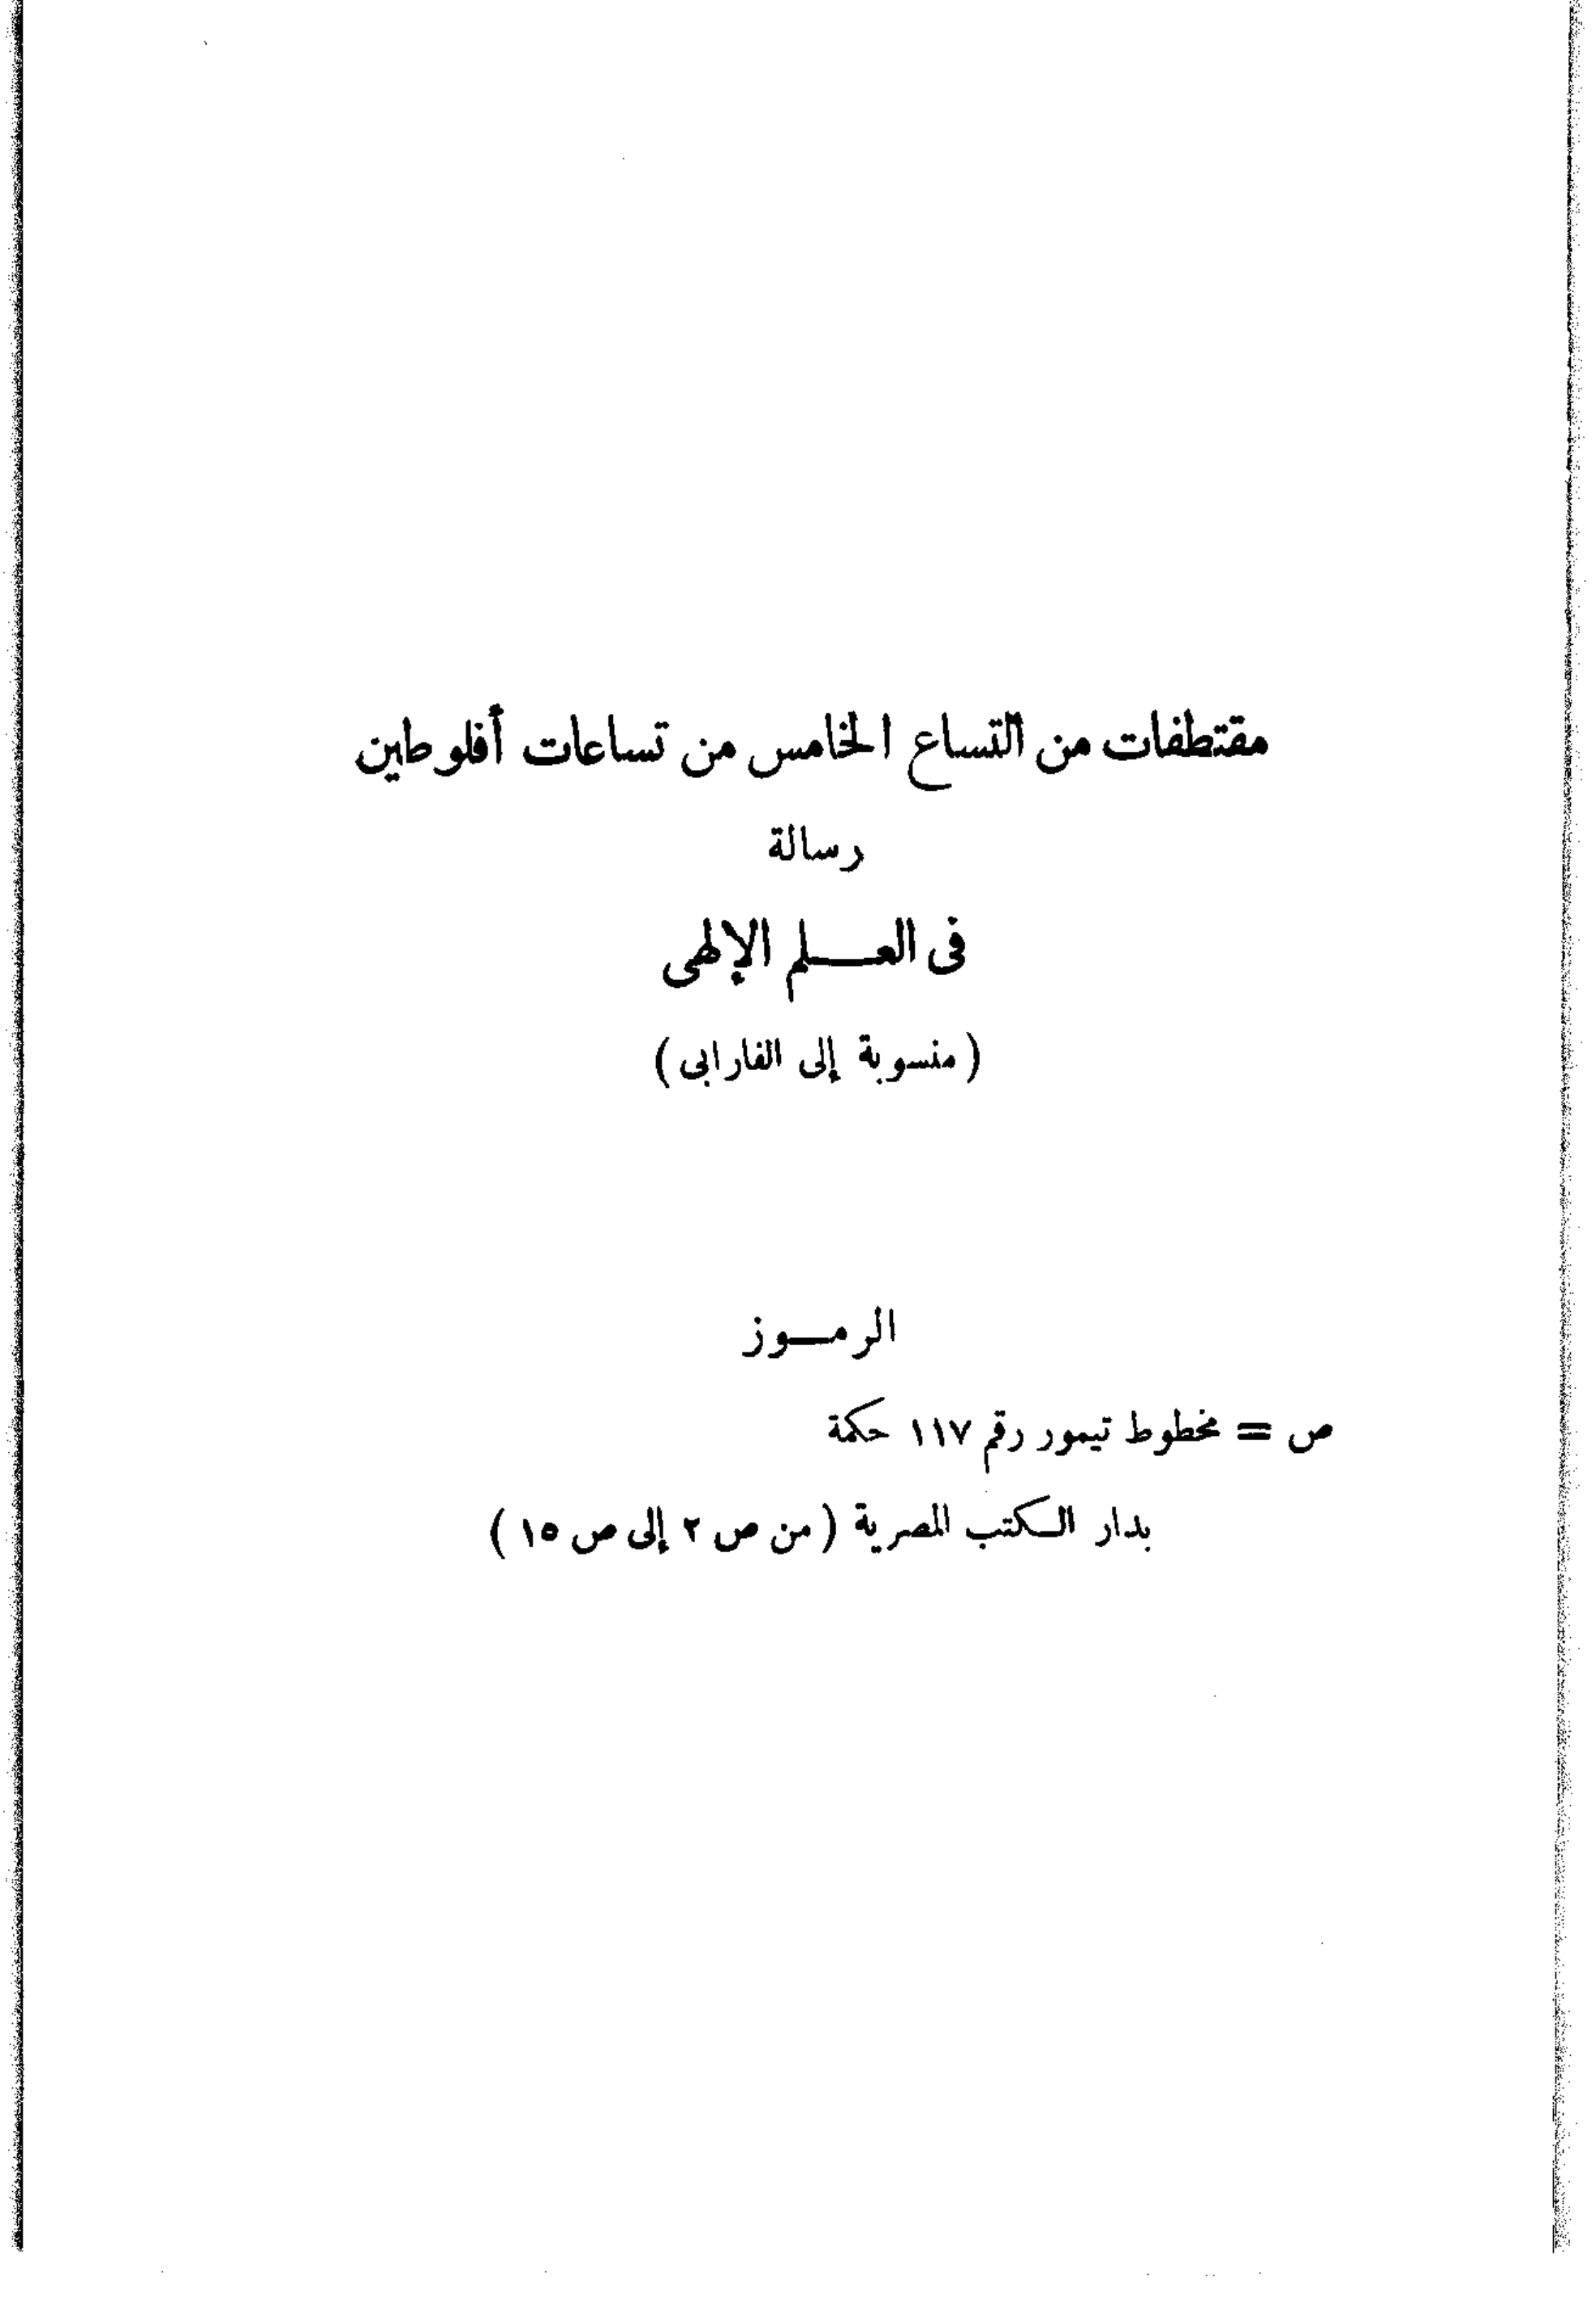 مقتطفات من التساع الخامس من تساعات أفلوطين
رسالة
فى العلم الإلهى
(منسوبة إلى الفارابى)
الرموز
ص = مخطوط تيمور رقم ١١٧ حكمة
بدار الكتب المصرية (من ص ٢ إلى ص ١٥)